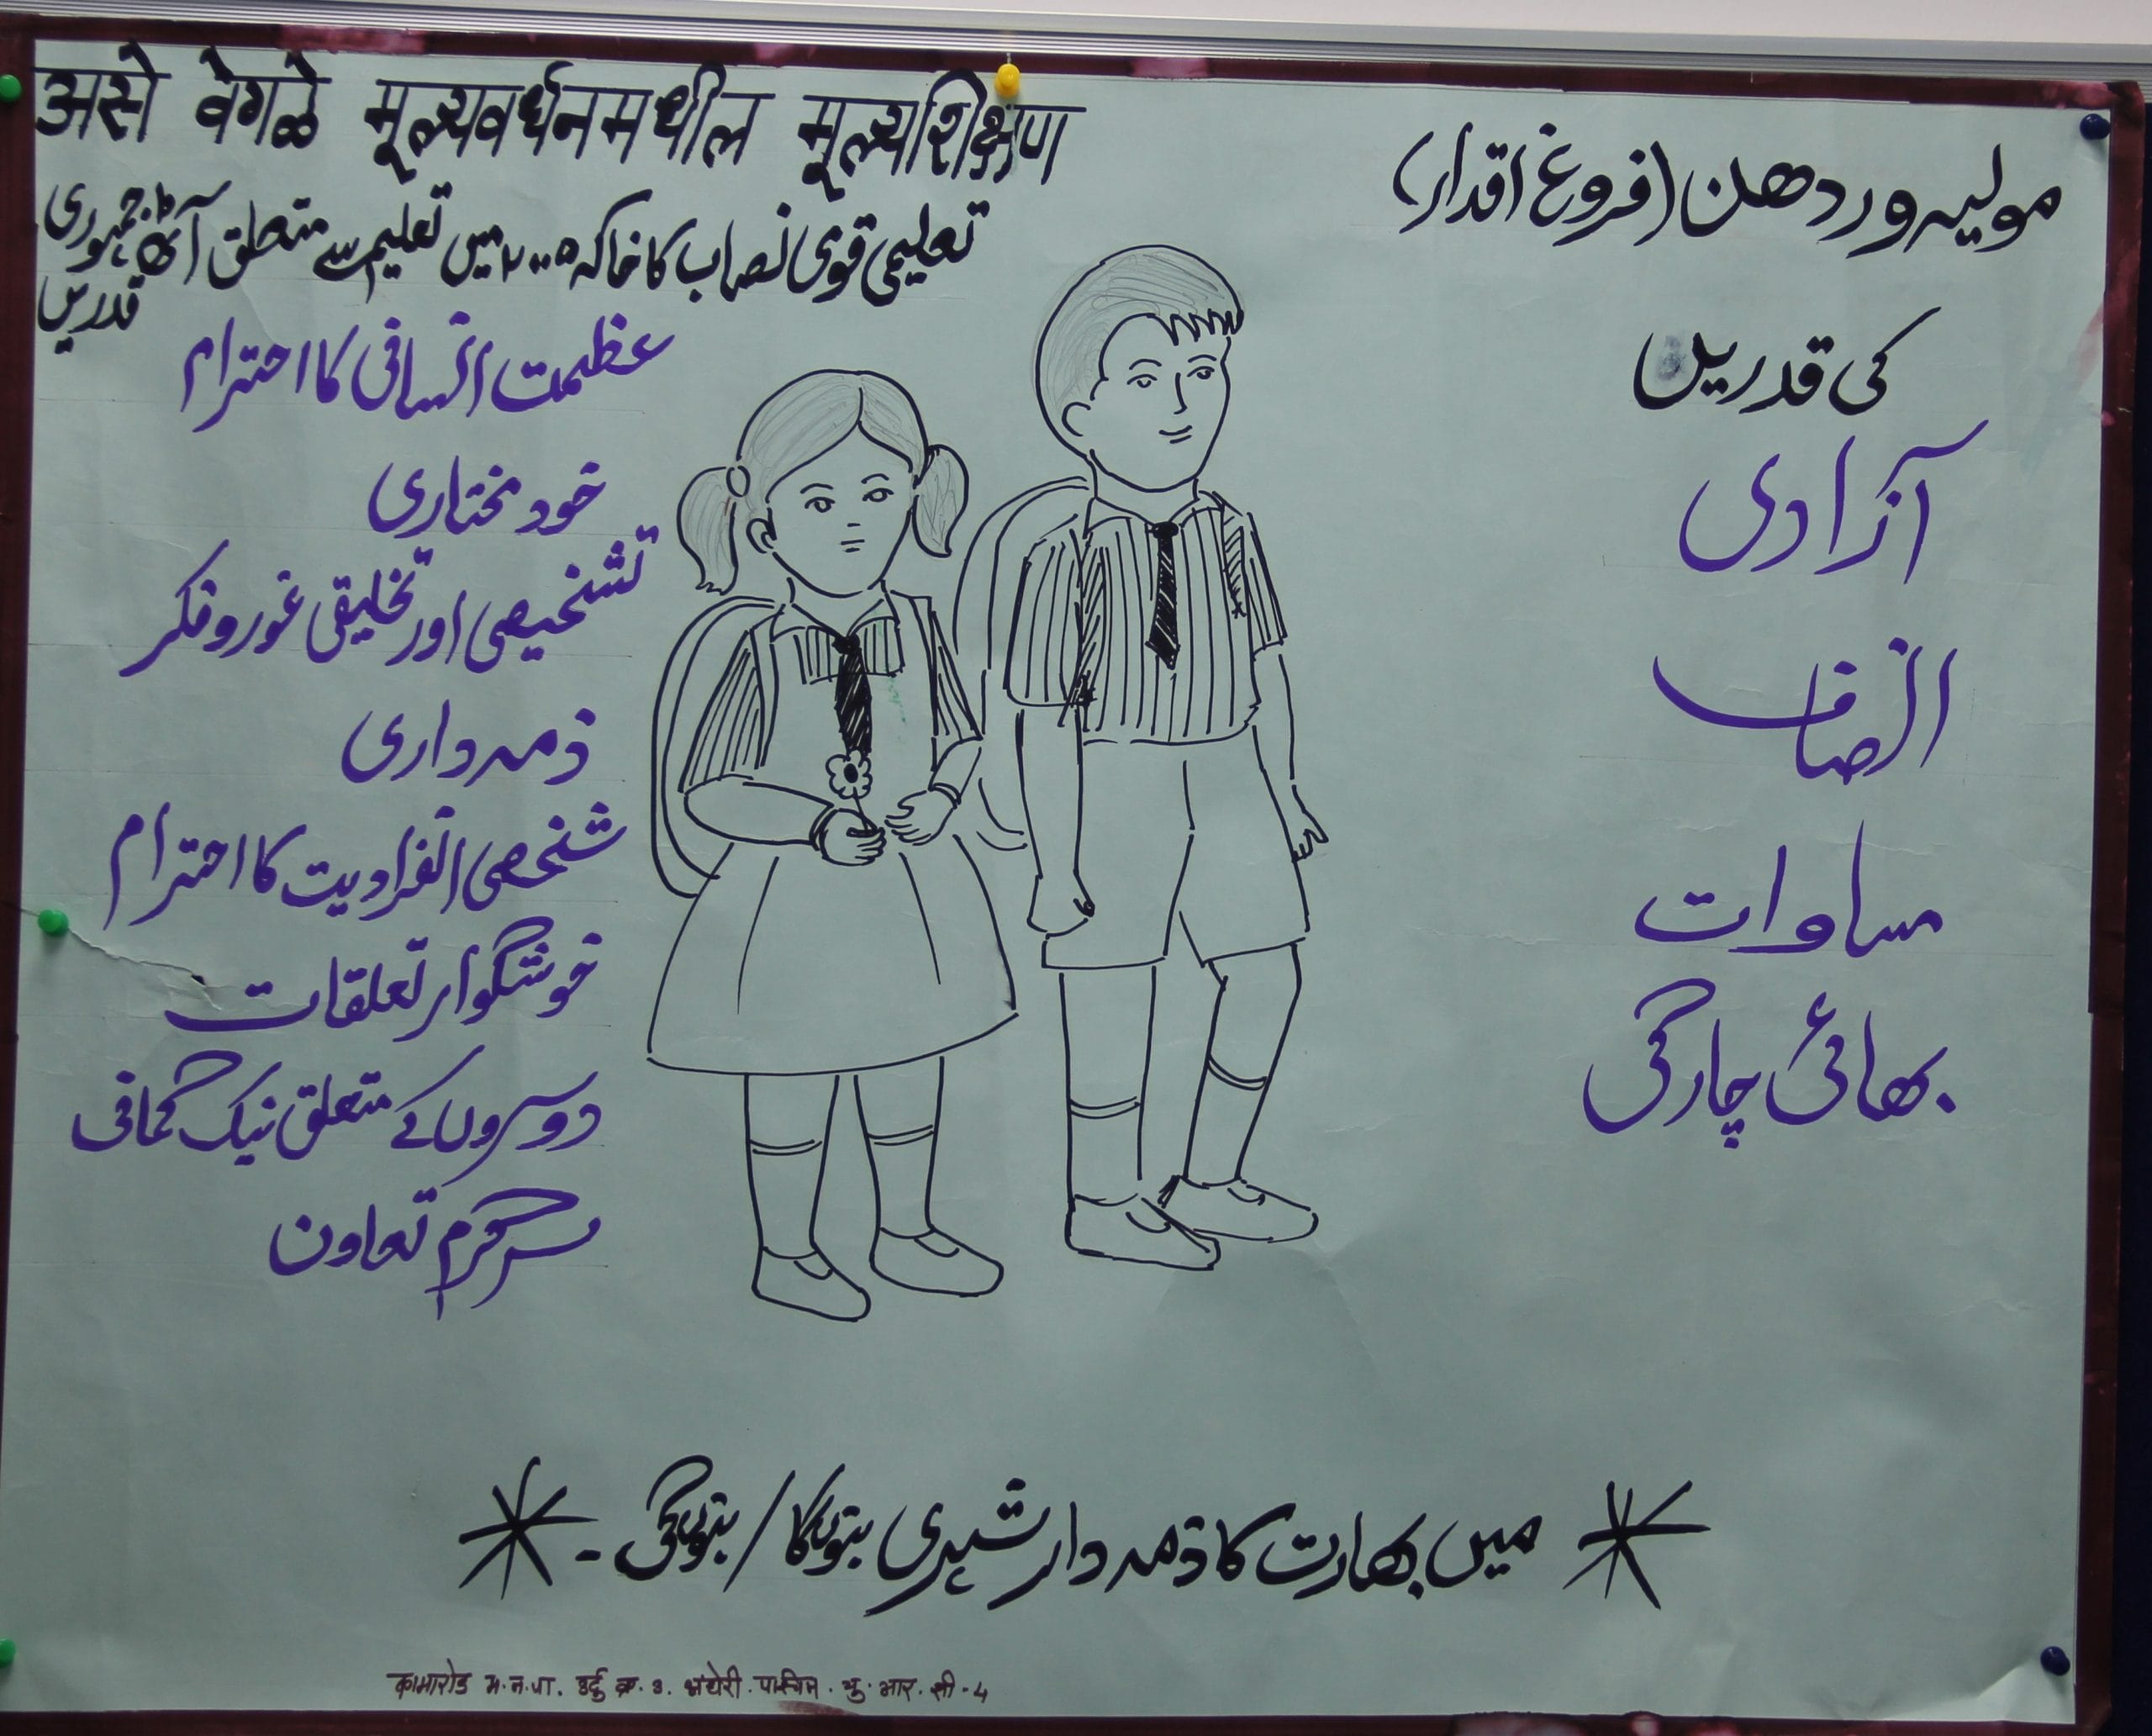 असे वेगळे मूल्यवर्धनमधील मूल्यशिक्षण
مولیہ وردھن (فروغ اقدار)
کی قدریں
آزادی
انصاف
مساوات
بھائی چارگی
تعلیمی قومی نصاب کا خاکہ ۲۰۰۵ میں تعلیم سے متعلق آٹھ جمہوری
قدریں
عظمت انسانی کا احترام
خود مختاری
تشخیصی اور تخلیقی غور و فکر
ذمہ داری
شخصی انفرادیت کا احترام
خوشگوار تعلقات
دوسروں کے متعلق نیک گمانی
سرگرم تعاون
میں بھارت کا ذمہ دار شہری بنوں گا / بنوں گی -
कामारोड म.न.पा. उर्दु क्र. 3. अंधेरी. पश्चिम. यु. आर. सी - 4